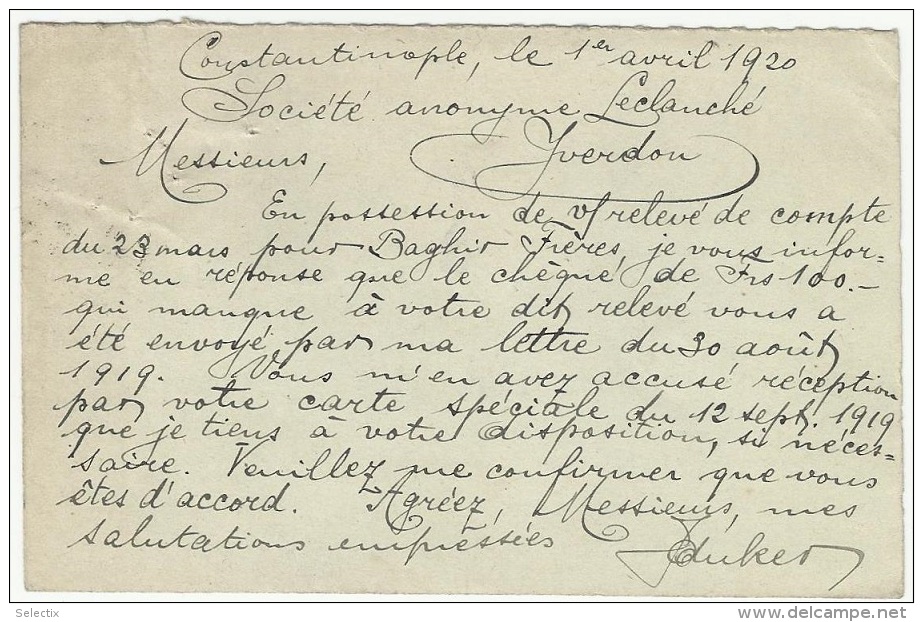 Constantinople, le 1er avril 1920
Société anonyme Leclanché
Messieurs, Yverdon
En possession de v/ relevé de compte
du 23 mars pour Baghir Frères, je vous infor=
me en réponse que le chèque de Frs 100.—
qui manque à votre dit relevé vous a
été envoyé par ma lettre du 30 août
1919. Vous m'en avez accusé réception
par votre carte spéciale du 12 sept. 1919
que je tiens à votre disposition, si néces=
saire. Veuillez me confirmer que vous
êtes d'accord. Agréez, Messieurs, mes
salutations empressées
Selectix
delcampe.net